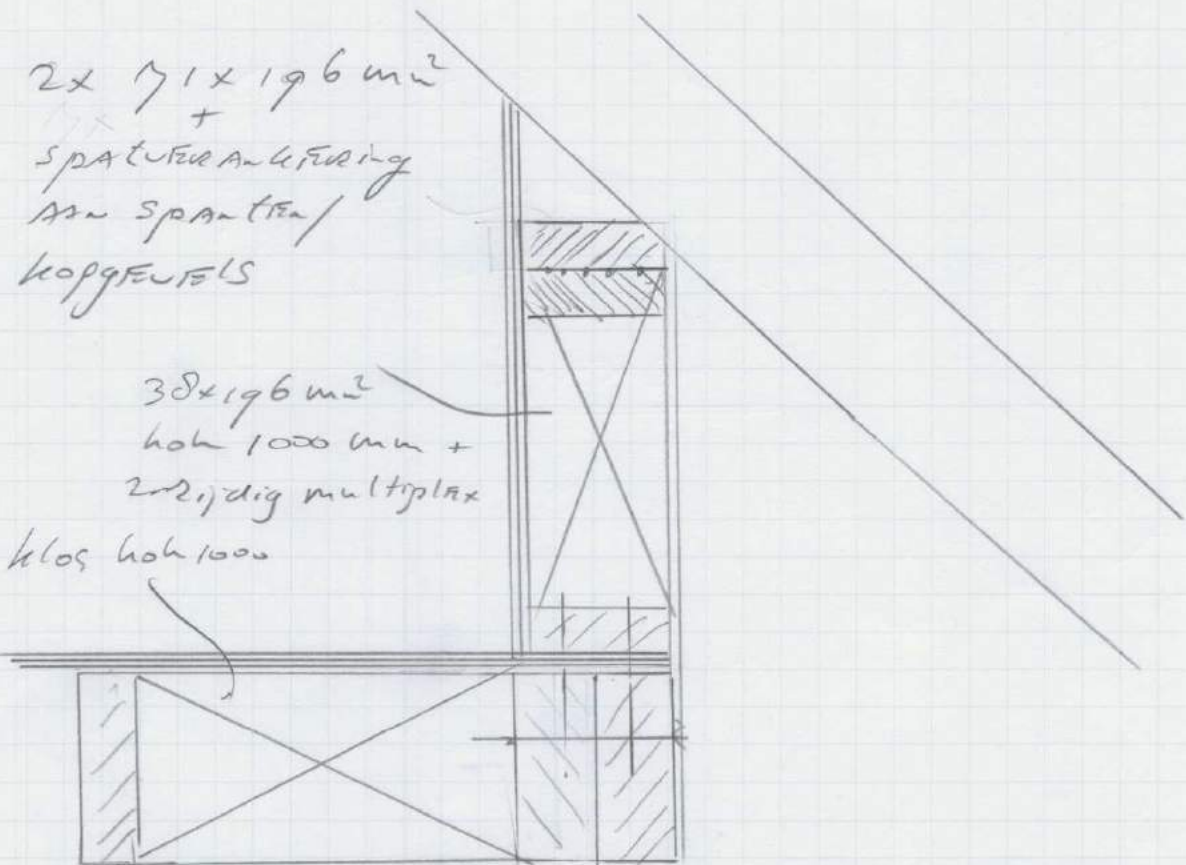 2x 71x196 mm²
+
spatverankering
aan spanten/
kopgevels
38x196 mm²
hoh 1000 mm +
2-zijdig multiplex
klos hoh 1000